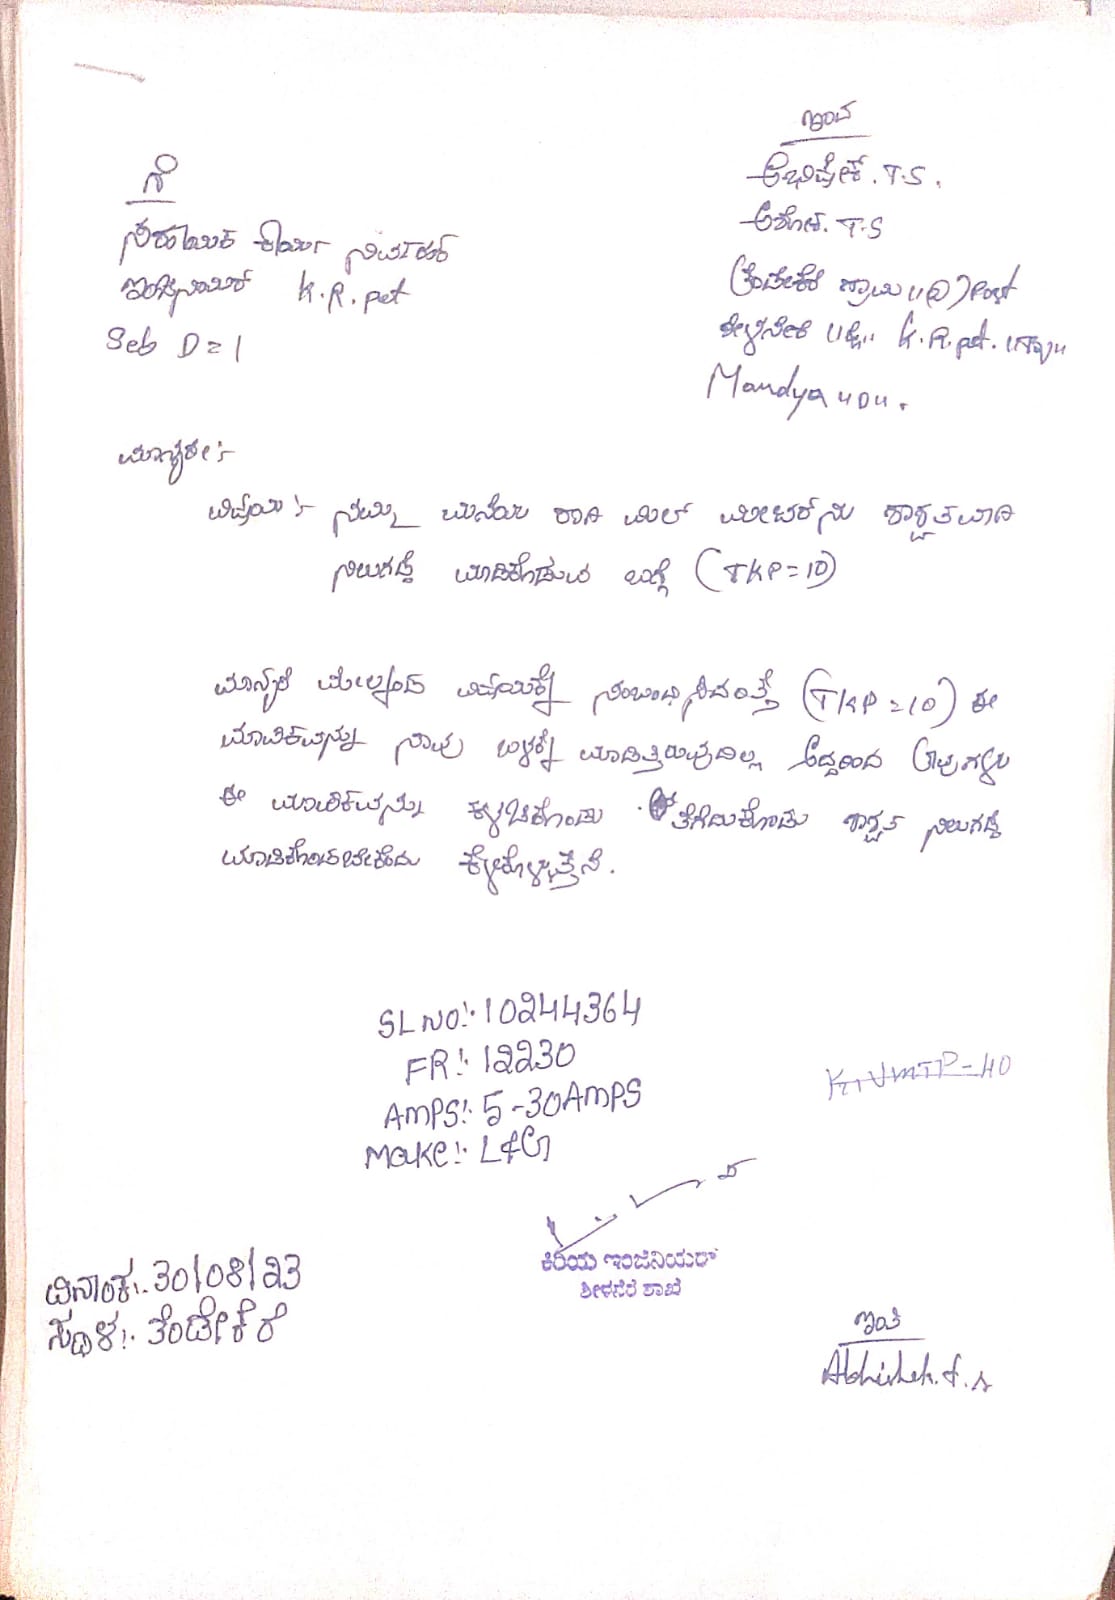 ಇಂದ
ಅಭಿಷೇಕ್. T.S.
ಅಶೋಕ. T.S
ತೆಂಡೇಕೆರೆ ಗ್ರಾಮ (@) Post
ಶೀಳನೇರೆ K.R.pet.
Mandya "D".
ಗೆ
ಸಹಾಯಕ ಕಾರ್ಯ ನಿರ್ವಾಹಕ
ಇಂಜಿನಿಯರ್ K.R.pet
Seb D=1
ಮಾನ್ಯರೇ:-
ವಿಷಯ:- ನಮ್ಮ ಮನೆಯ ರಾಗಿ ಮಿಲ್ ಮೀಟರ್‌ನು ಶಾಶ್ವತವಾಗಿ
ನಿಲುಗಡೆ ಮಾಡಿಕೊಡುವ ಬಗ್ಗೆ (TKP=10)
ಮಾನ್ಯರೆ ಮೇಲ್ಕಂಡ ವಿಷಯಕ್ಕೆ ಸಂಬಂಧಿಸಿದಂತ್ತೆ (TKP=10) ಈ
ಮಾಪಕವನ್ನು ನಾವು ಬಳಕ್ಕೆ ಮಾಡಿತ್ತಿರುವುದಿಲ್ಲ ಆದ್ದರಿಂದ ತಾವುಗಳು
ಈ ಮಾಪಕವನ್ನು ಕಳಚಿಕೊಂಡು ತೆಗೆದುಕೊಂಡು ಶಾಶ್ವತ ನಿಲುಗಡೆ
ಮಾಡಿಕೊಡಬೇಕೆಂದು ಕೇಳಿಕೊಳ್ಳುತ್ತೇನೆ.
SL NO:- 10244364
FR:- 12230
AMPS:- 5-30AMPS
Make:- L&G
ಕಿರಿಯ ಇಂಜಿನಿಯರ್
ಶೀಳನೆರೆ ಶಾಖೆ
ದಿನಾಂಕ:- 30/08/23
ಸ್ಥಳ:- ತೆಂಡೇಕೆರೆ
ಇಂತಿ
Abhishek.t.s